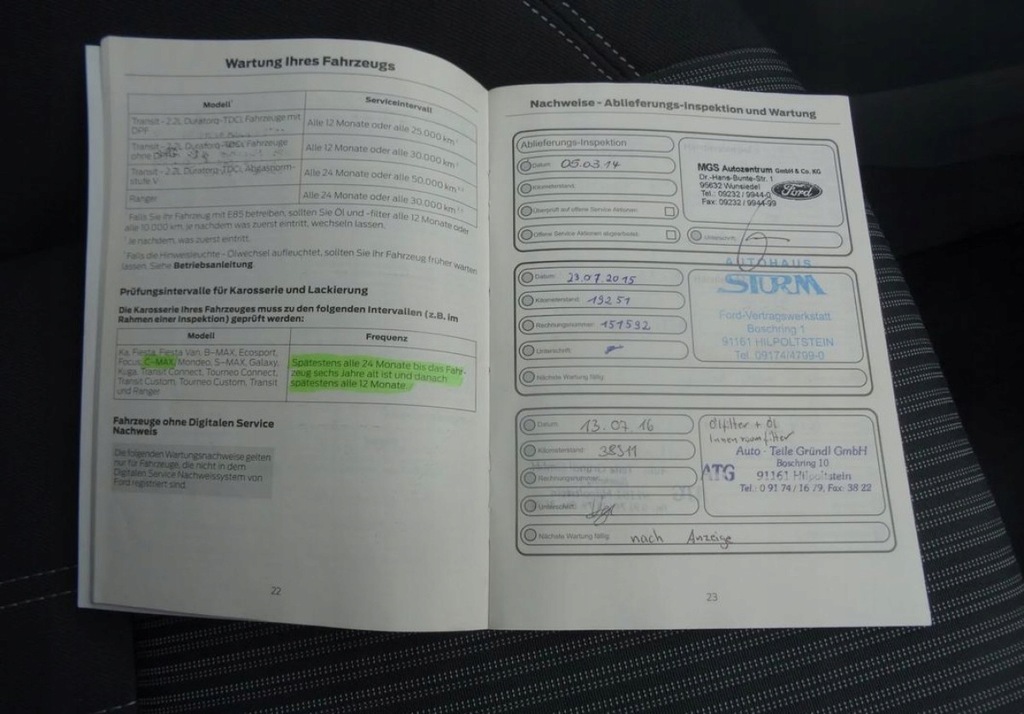 Wartung Ihres Fahrzeugs
Modell¹ Serviceintervall
Transit - 2.2L Duratorq-TDCi, Fahrzeuge mit
DPF
Alle 12 Monate oder alle 25.000 km
Transit - 2.2L Duratorq-TDCi, Fahrzeuge
ohne
Alle 12 Monate oder alle 30.000 km
Transit - 2.2L Duratorq-TDCi, Abgasnorm-
stufe V
Alle 24 Monate oder alle 50.000 km
Ranger
Alle 24 Monate oder alle 30.000 km
Falls Sie Ihr Fahrzeug mit E85 betreiben, sollten Sie Öl und -filter alle 12 Monate oder
alle 10.000 km, je nachdem was zuerst eintritt, wechseln lassen.
Je nachdem, was zuerst eintritt.
Falls die Hinweisleuchte - Ölwechsel aufleuchtet, sollten Sie Ihr Fahrzeug früher warten
lassen. Siehe Betriebsanleitung.
Prüfungsintervalle für Karosserie und Lackierung
Die Karosserie Ihres Fahrzeuges muss zu den folgenden Intervallen (z.B. im
Rahmen einer Inspektion) geprüft werden:
Modell Frequenz
Ka, Fiesta, Fiesta Van, B-MAX, Ecosport,
Focus, C-MAX, Mondeo, S-MAX, Galaxy,
Kuga, Transit Connect, Tourneo Connect,
Transit Custom, Tourneo Custom, Transit
und Ranger
Spätestens alle 24 Monate bis das Fahr-
zeug sechs Jahre alt ist und danach
spätestens alle 12 Monate.
Fahrzeuge ohne Digitalen Service
Nachweis
Die folgenden Wartungsnachweise gelten
nur für Fahrzeuge, die nicht in dem
Digitalen Service Nachweissystem von
Ford registriert sind.
22
Nachweise - Ablieferungs-Inspektion und Wartung
Ablieferungs-Inspektion
Datum: 05.03.14
Kilometerstand:
Überprüft auf offene Service Aktionen:
Offene Service Aktionen abgearbeitet:
MGS Autozentrum GmbH & Co. KG
Dr.-Hans-Bunte-Str. 1
95632 Wunsiedel
Tel.: 09232 / 9944-0
Fax: 09232 / 9944-99
Ford
Unterschrift:
Datum: 23.07.2015
Kilometerstand: 19251
Rechnungsnummer: 151592
Unterschrift:
Nächste Wartung fällig:
AUTOHAUS
STURM
Ford-Vertragswerkstatt
Boschring 1
91161 HILPOLTSTEIN
Tel. 09174/4799-0
Datum: 13.07.16
Kilometerstand: 38311
Rechnungsnummer:
Unterschrift:
Nächste Wartung fällig: nach Anzeige
Ölfilter + Öl
Innenraumfilter
Auto - Teile Gründl GmbH
Boschring 10
ATG 91161 Hilpoltstein
Tel.: 0 91 74 / 16 79, Fax: 38 22
23